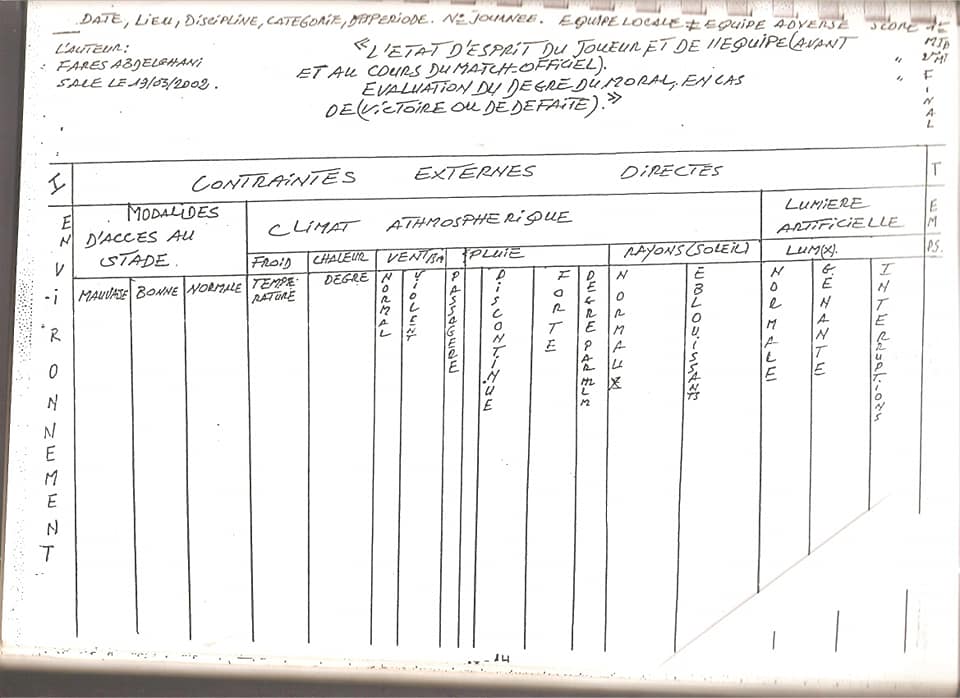 DATE, LIEU, DISCIPLINE, CATEGORIE, PERIODE. N° JOURNEE. EQUIPE LOCALE ≠ EQUIPE ADVERSE SCORE 1E MIT
" 2E MIT
" FINAL
L'AUTEUR:
FARES ABDELGHANI
SALE LE 19/03/2002.
«L'ETAT D'ESPRIT DU JOUEUR ET DE l'EQUIPE (AVANT
ET AU COURS DU MATCH-OFFICIEL).
EVALUATION DU DEGRE DU MORAL, EN CAS
DE (VICTOIRE OU DE DEFAITE).»
I ENVIRONNEMENT
CONTRAINTES EXTERNES DIRECTES
TEMPS.
MODALIDES
D'ACCES AU
STADE.
CLIMAT ATHMOSPHERIQUE
LUMIERE
ARTIFICIELLE
FROID CHALEUR PLUIE RAYONS (SOLEIL) LUM(X).
MAUVAISE BONNE NORMALE
TEMPE-
RATURE
DEGRE
NORMAL
VIOLENT
PASSAGERE
DISCONTINUE
FORTE
DEGRE PAR MLM
NORMAUX
EBLOUISSANTS
NORMALE
GENANTE
INTERRUPTIONS
14